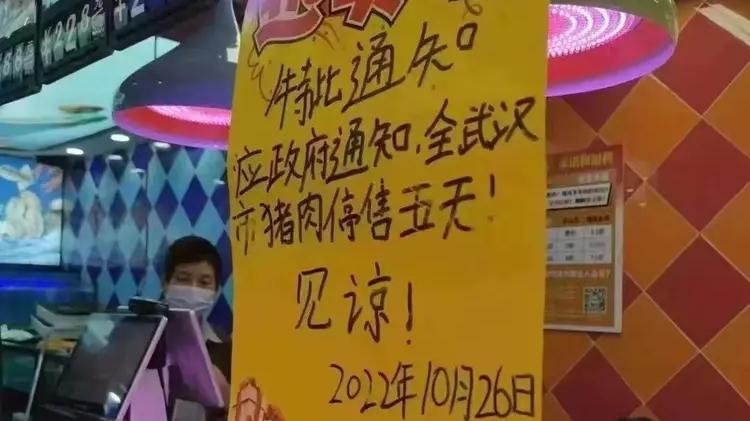 特此通知
应政府通知,全武汉
市猪肉停售五天!
见谅!
2022年10月26日
228